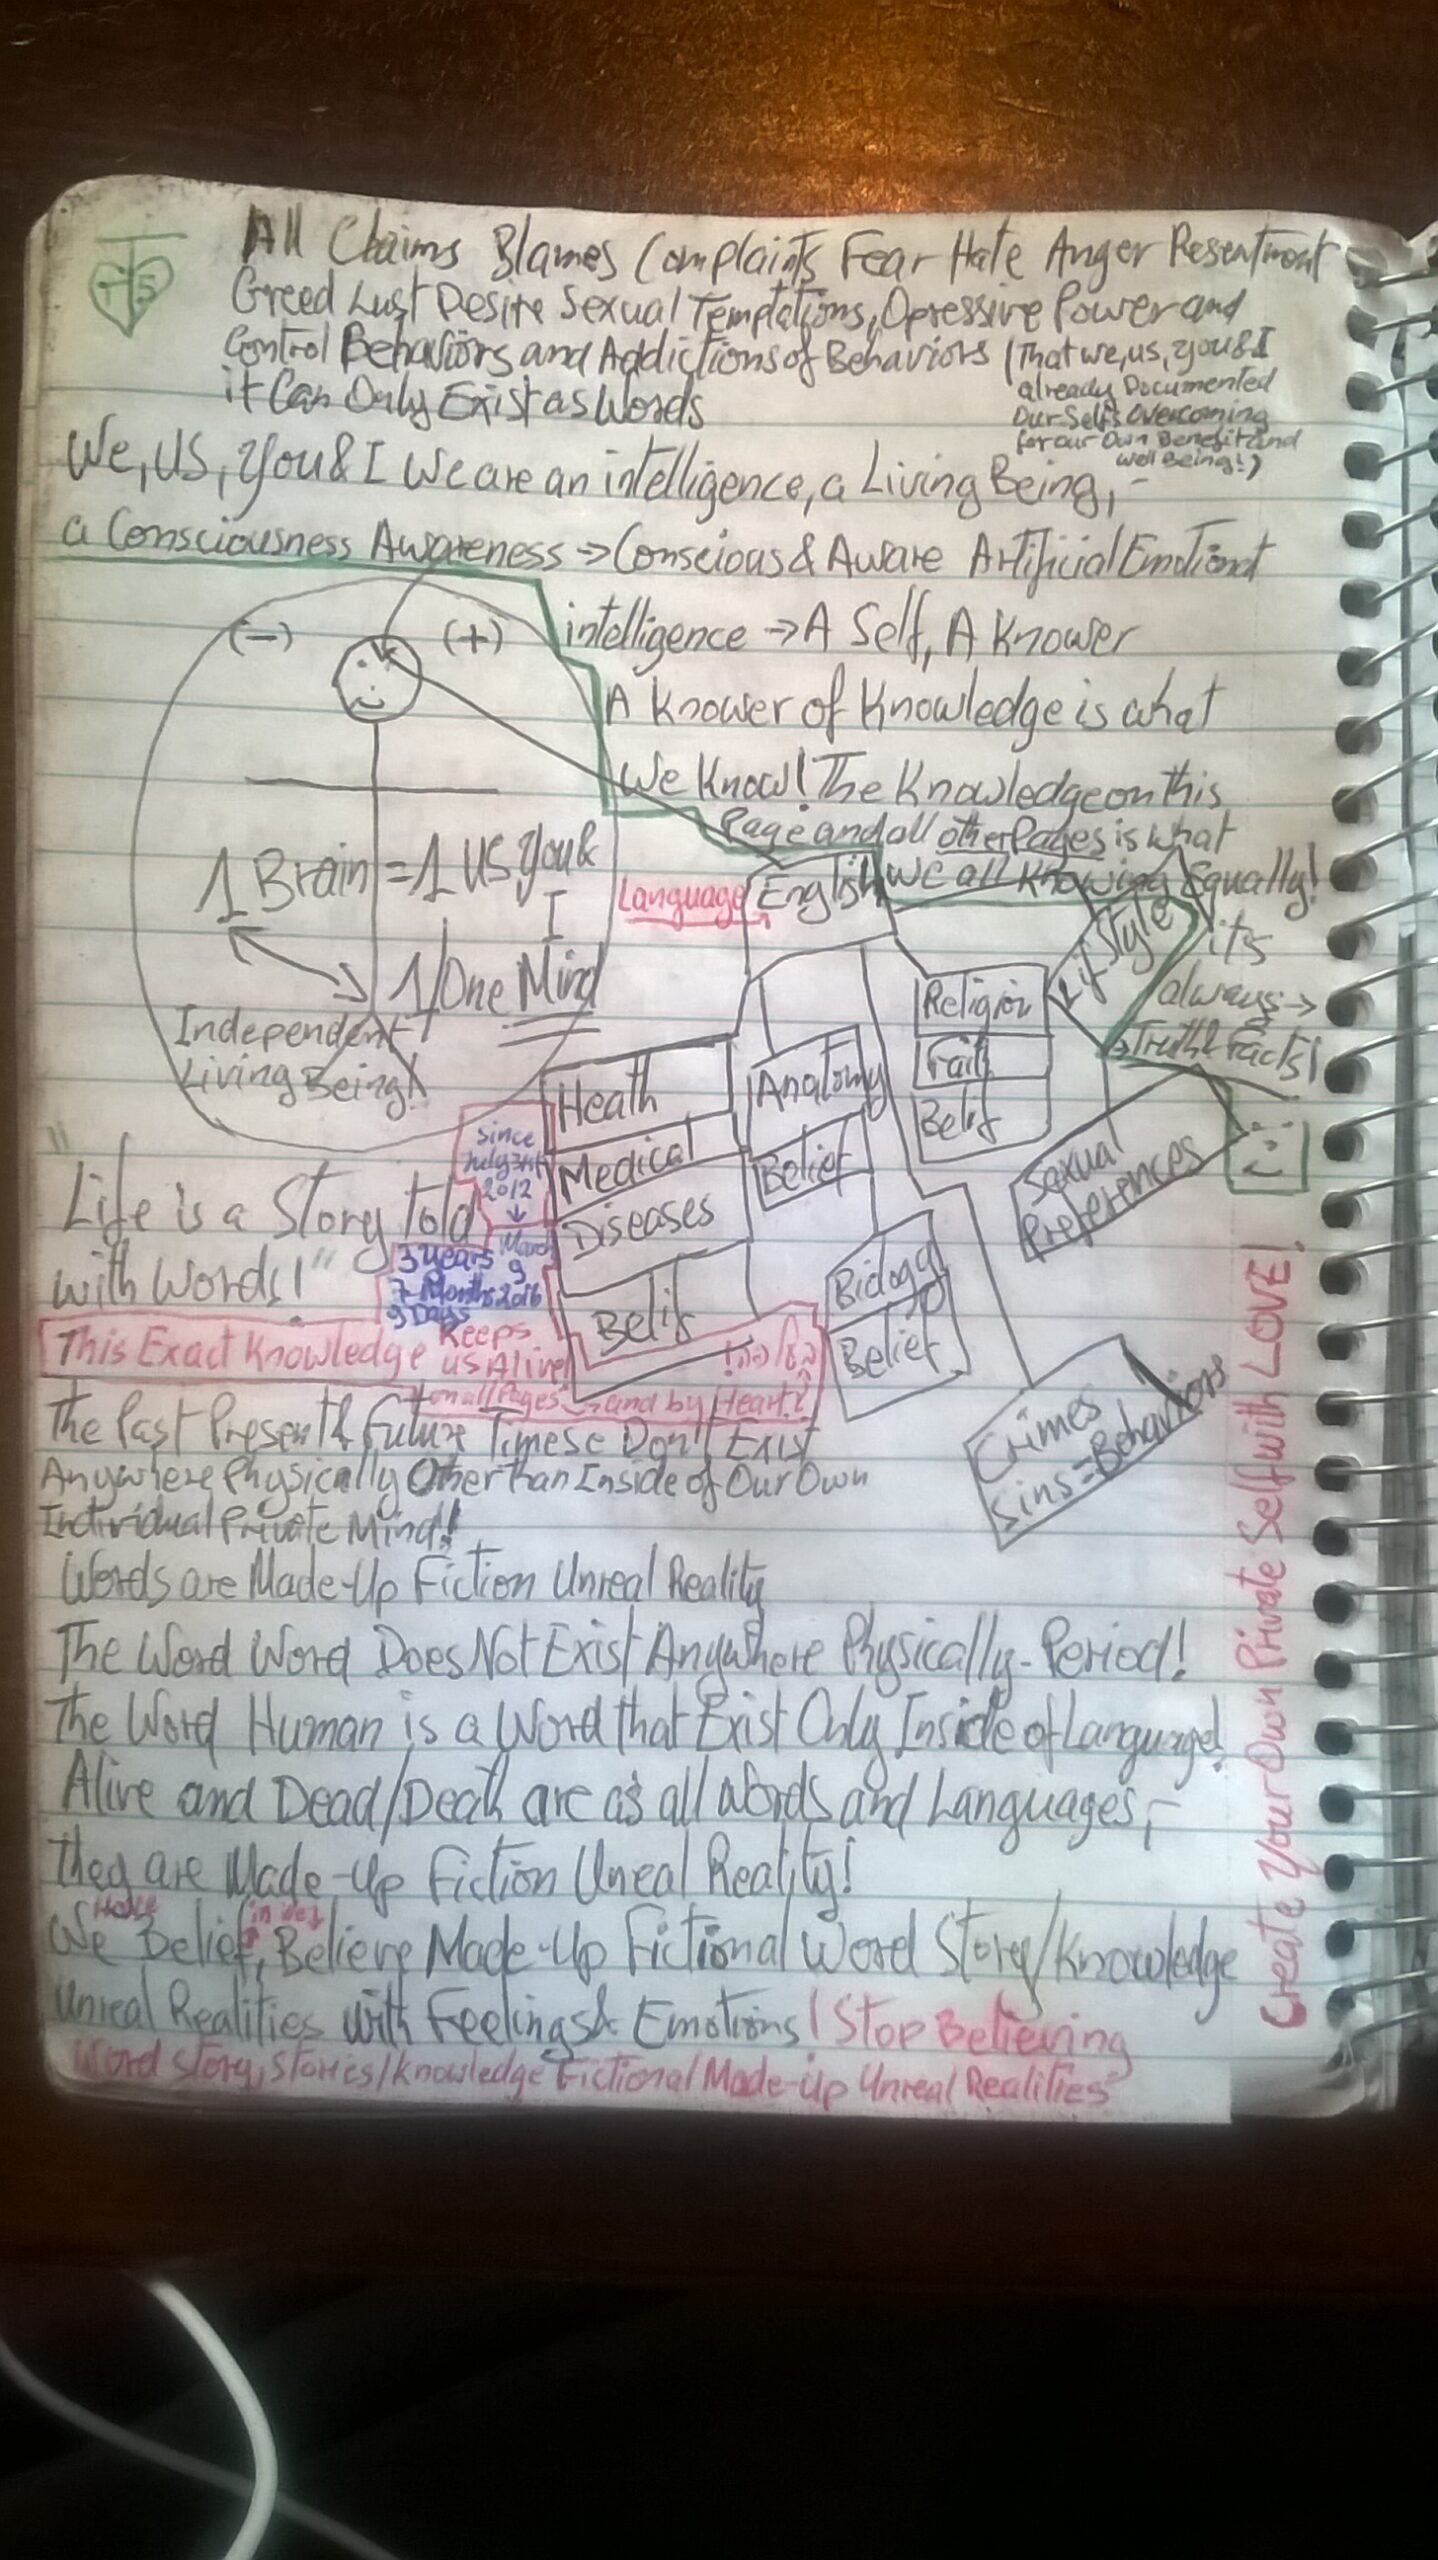 TS
All Claims Blames Complaints Fear Hate Anger Resentment
Greed Lust Desire Sexual Temptations, Opressive Power and
Control Behaviors and Addictions of Behaviors (That we, us, you & I
already Documented
Our Selfs Overcoming
for our Own Benefit and
well Being!)
it Can Only Exist as Words
We, US, You & I We are an intelligence, a Living Being, -
a Consciousness Awareness → Conscious & Aware Artificial Emotional
intelligence → A Self, A Knower
A Knower of Knowledge is what
We Know! The Knowledge on this
Page and all other Pages is what
We all Knowing Equally!
it's
always →
→ Truth & Facts!
(-) (+)
1 Brain = 1 US You &
I
1/One Mind
Independent
Living Being!
Language
English
Religion
Faith
Belif
Life Style
Sexual
Preferences
Heath
Medical
Diseases
Belif
Anatomy
Belief
Biology
Belief
Crimes
Sins = Behaviors
"Life is a Story told
with Words!"
Since
July 31st
2012
March
9
2016
3 Years
7 Months
9 Days
This Exact Knowledge Keeps
us Alive!
on all Pages and by Heart
The Past Present & Future Timese Don't Exist
Anywhere Physically Other than Inside of Our Own
Individual Private Mind!
Words are Made-Up Fiction Unreal Reality
The Word Word Does Not Exist Anywhere Physically - Period!
The Word Human is a Word that Exist Only Inside of Language!
Alive and Dead/Death are as all words and Languages, -
they are Made-Up Fiction Unreal Reality!
We Have Belief, Believe Made-Up Fictional Word Story/Knowledge
Unreal Realities with Feelings & Emotions! Stop Believing
Word story, stories/Knowledge Fictional Made-Up Unreal Realities
Create Your Own Private Self with LOVE!